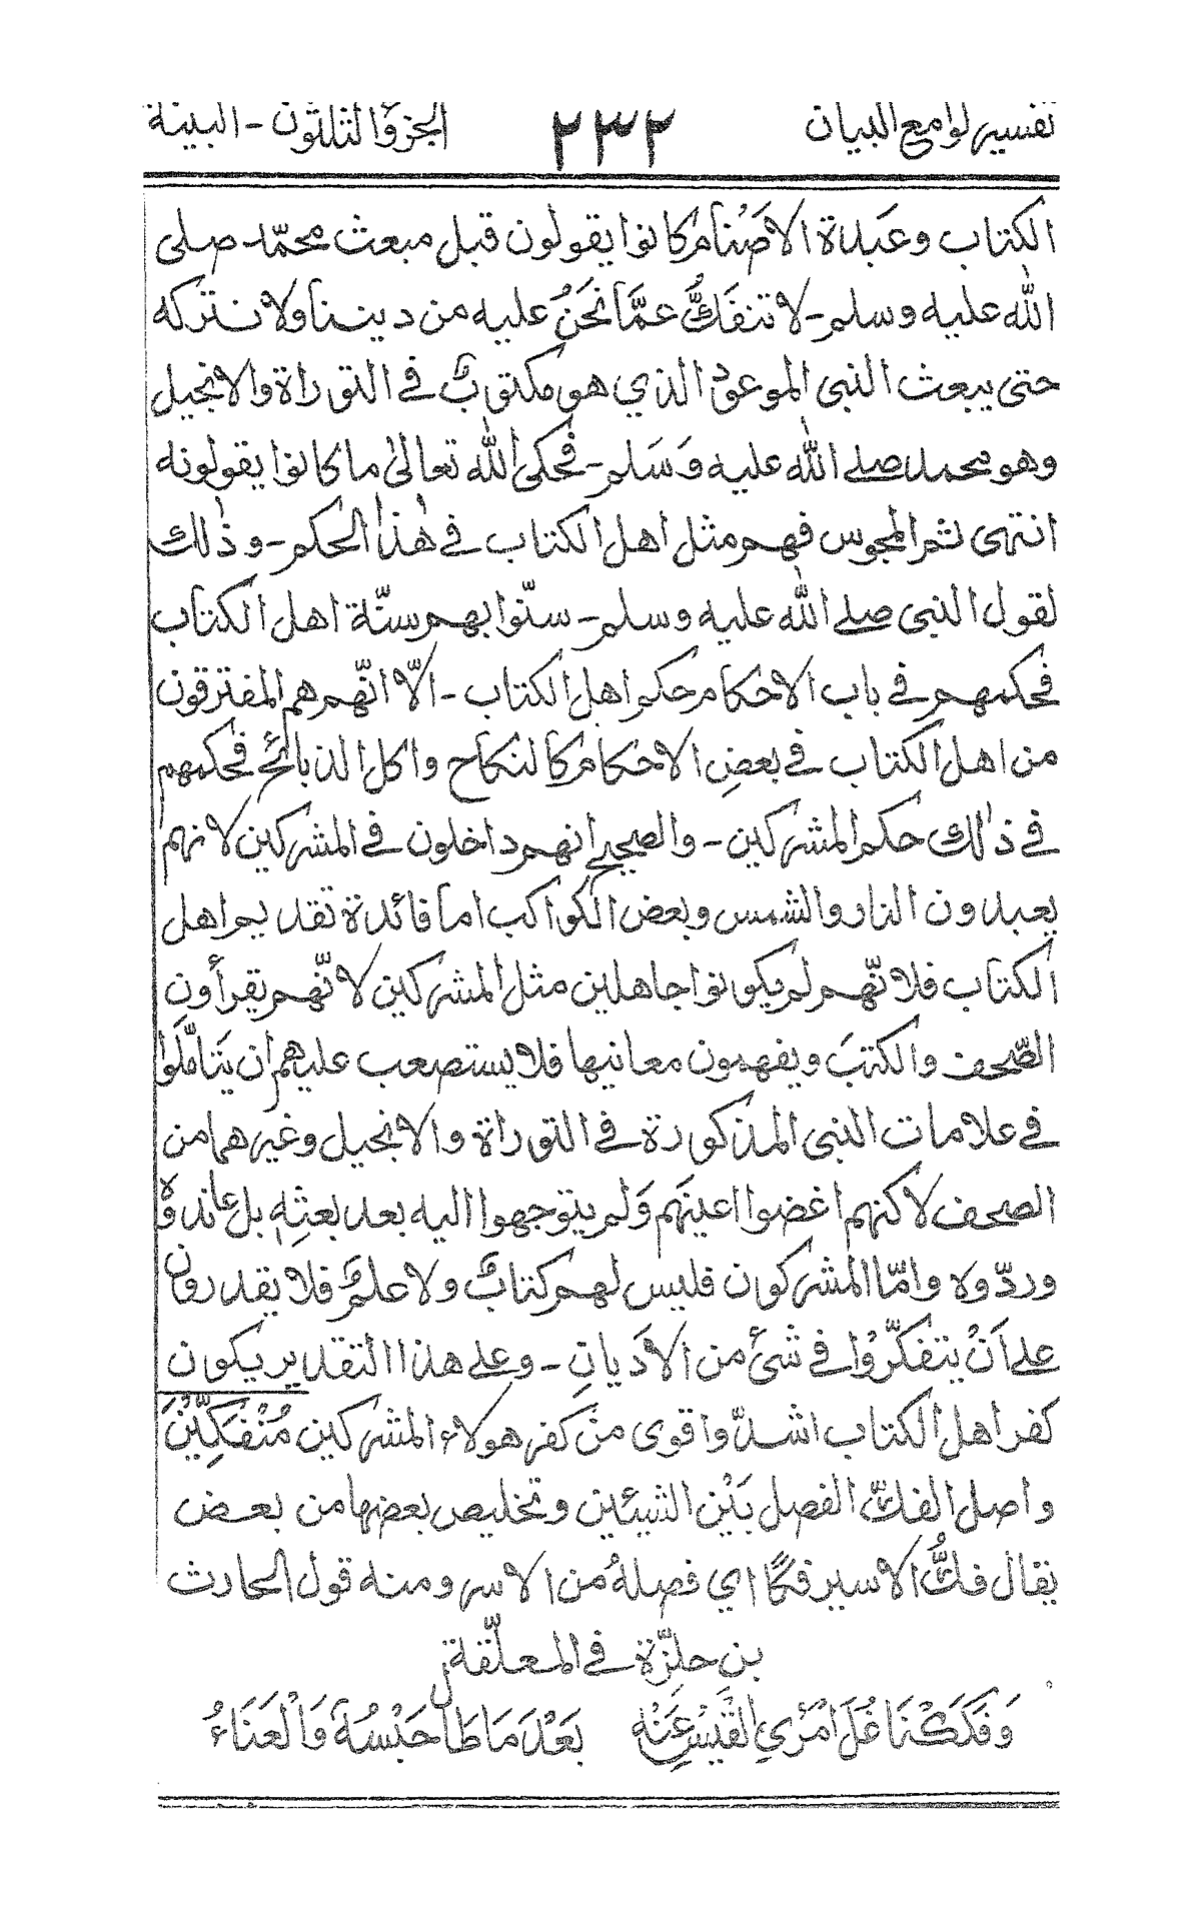 تفسير لوامع البيان ٢٣٢ الجزؤ الثلثون - البينة
الكتاب وعبدة الاصْنام كانوا يقولون قبل مبعث محمّد صلى
الله عليه وسلم - لا تنفَكُّ عمَّا نحَنُ عليه من ديننا ولا نتركه
حتى يبعث النبى الموعود الذي هو مكتوبٌ في التوراة والانجيل
وهو محمد صلے الله عليه وَسَلم - فحكى الله تعالىٰ ما كانوا يقولونه
انتهى ثم المجوس فهم مثل اهل الكتاب في هٰذا الحكم - و ذٰلك
لقول النبى صلے الله عليه وسلم - سنّوا بهم سنّة اهل الكتاب
فحكمهم في باب الاحكام حكم اهل الكتاب - الّا انّهم هم المفترقون
من اهل الكتاب في بعضِ الاحكام كالنكاح واكل الذبائح فحكمهم
في ذٰلك حكم المشركين - والصحيح انهم داخلون في المشركين لانهم
يعبدون النار والشمس وبعض الكواكب اما فائدة تقديم اهل
الكتاب فلانّهم لم يكونوا جاهلين مثل المشركين لانّهم يقرأون
الصّحف والكتبَ ويفهمون معانيها فلا يستصعب عليهم ان يَتاملّوا
في علامات النبى المذكورة في التوراة والانجيل وغيرهما من
الصحف لاكنهم اغضوا اعينهم وَلم يتوجهوا اليه بعد بعثِهٖ بل عاندوهٗ
وردّوه وامّا المشركون فليس لهم كتابٌ ولا علمٌ فلا يقدرون
على اَنْ يتفكّرُوا في شئٍ من الاَديانِ - وعلے هذا التقدير يكون
كفر اهل الكتاب اشدّ واقوى من كفر هولاء المشركين مُنْفَكِّيْنَ
واصل الفكّ الفصل بَيْن الشيئين وتخليص بعضها من بعض
يقال فكُّ الاسير فكًّا اي فصلهُ من الاسر ومنه قول الحارث
بن حلِزّة في المعلّقة
وَفَكَكْنَا غُلَّ امْرَئِ القَيْسِ عَنْهِ بَعْدَ مَا طَا حَبْسُهَ وَالْعَنَاءُ